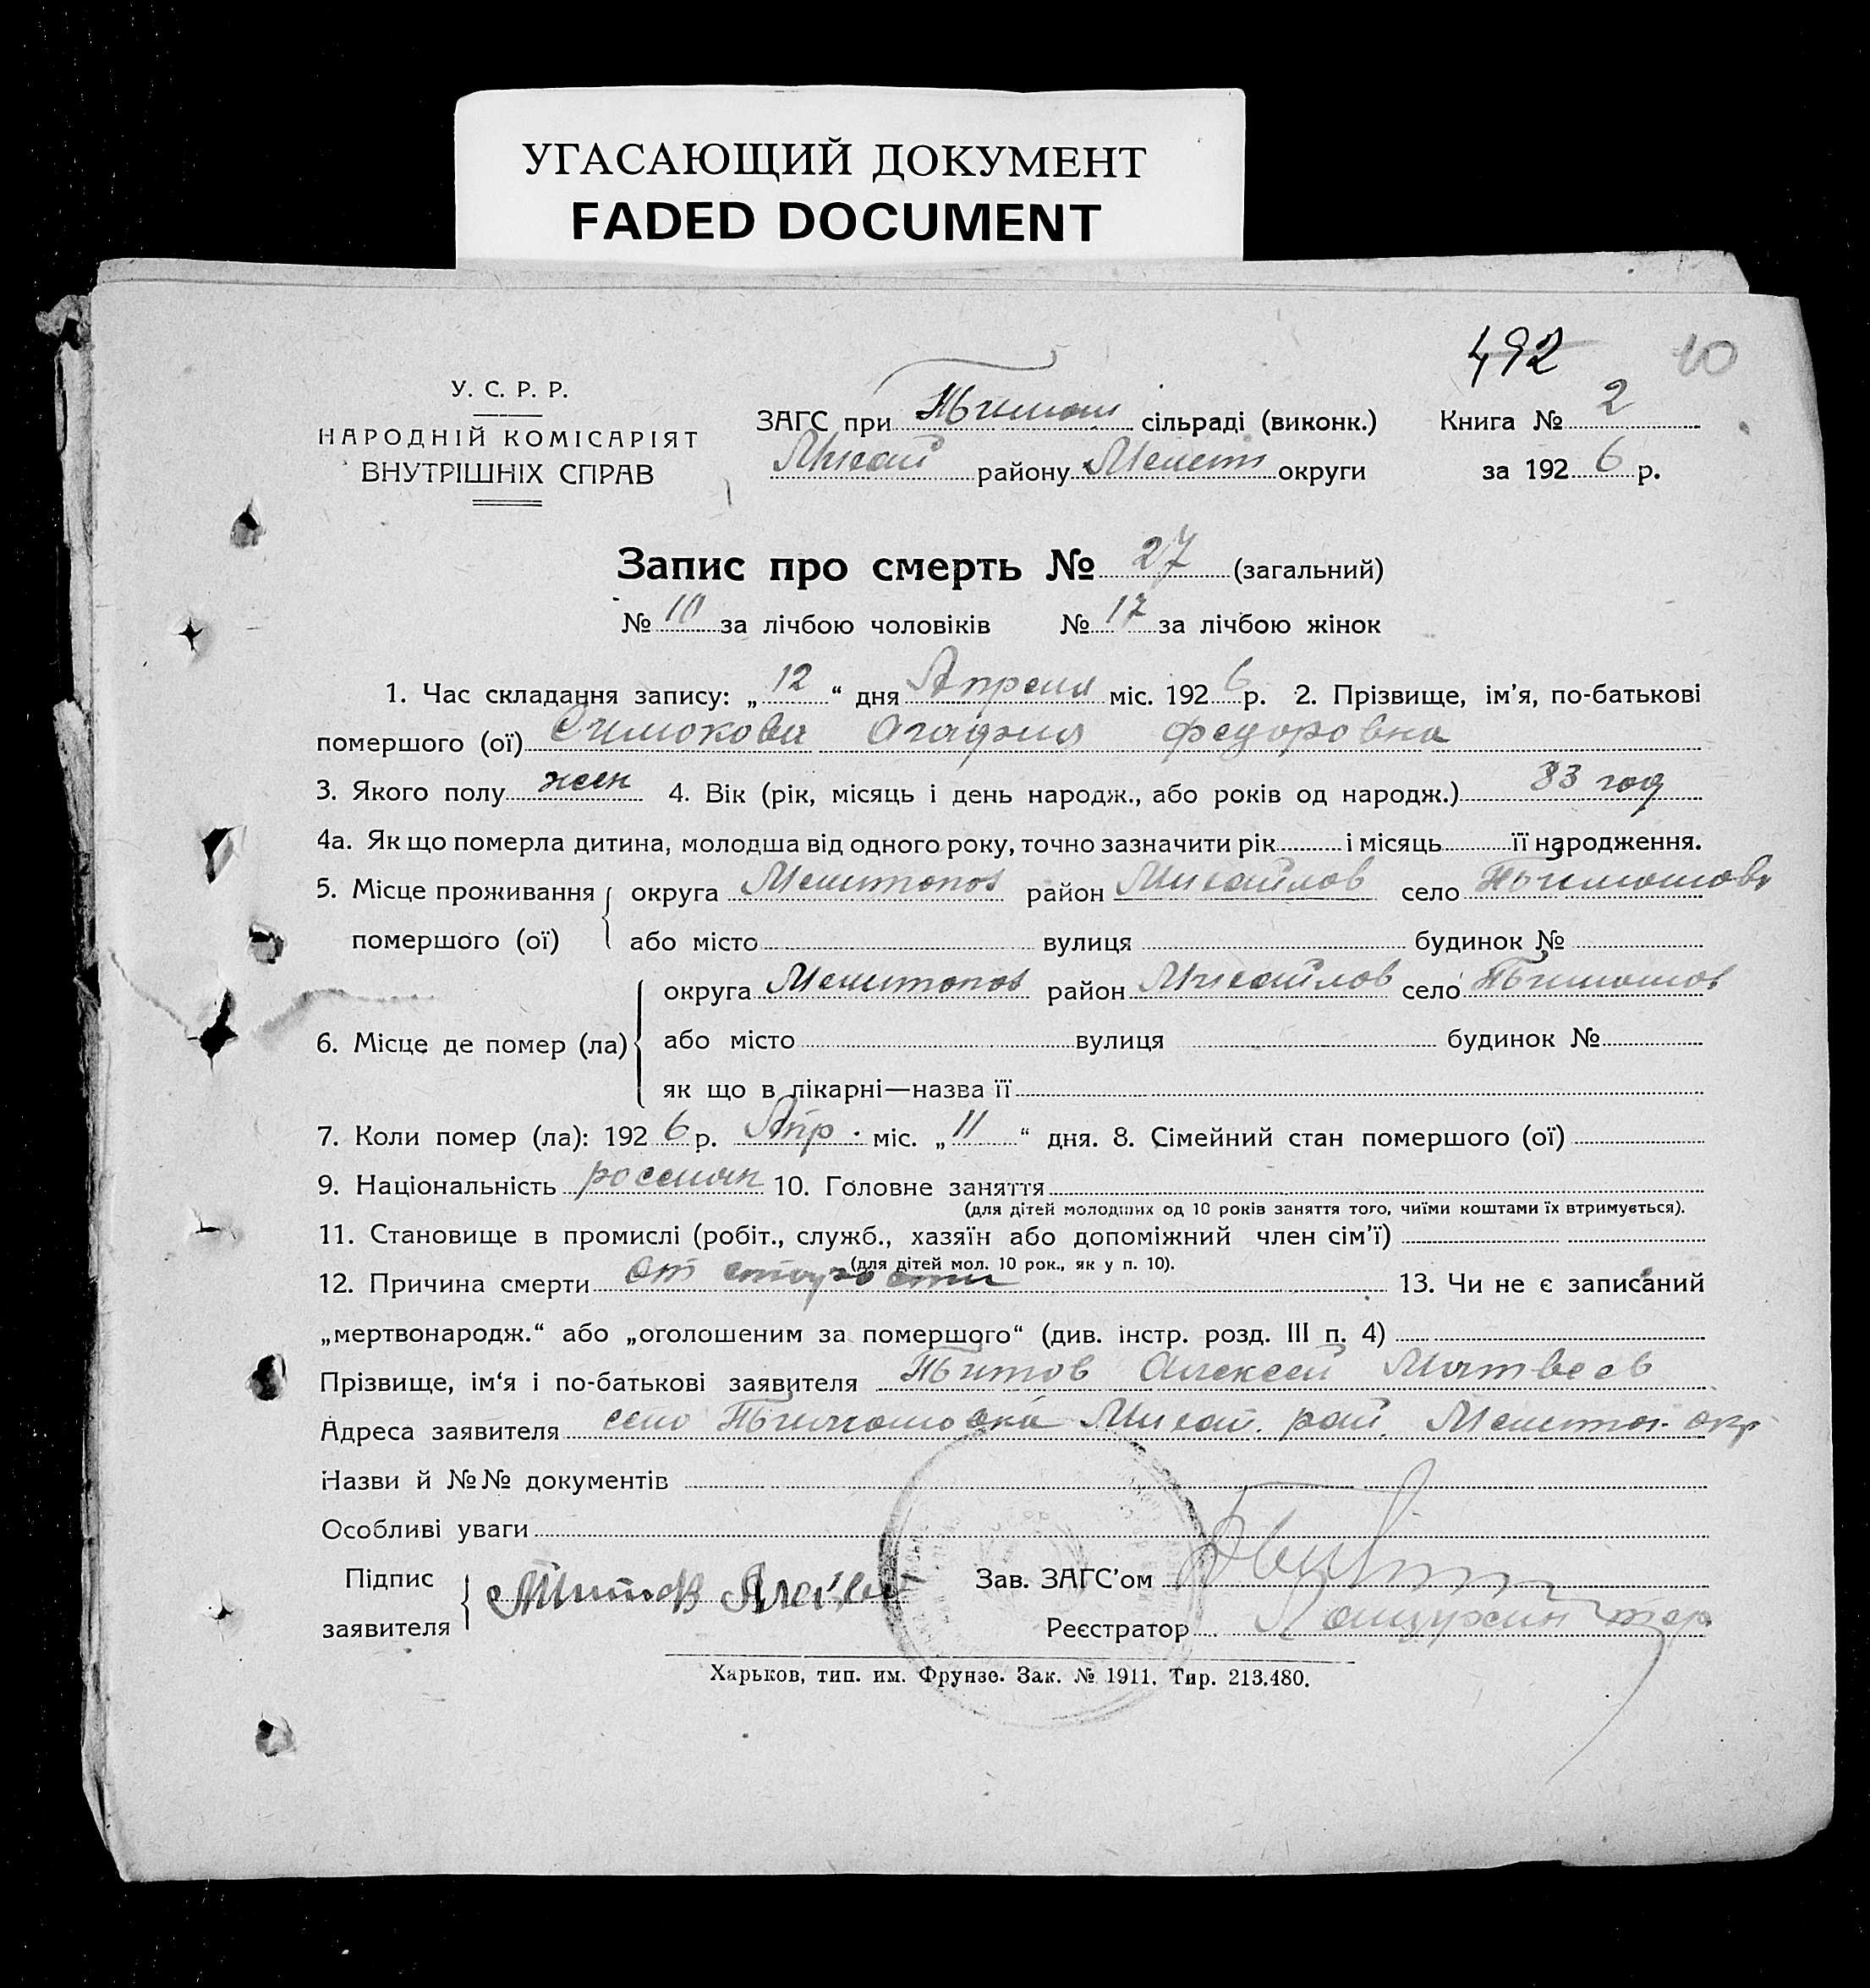 УГАСАЮЩИЙ ДОКУМЕНТ
FADED DOCUMENT
492 10
У. С. Р. Р.
НАРОДНІЙ КОМІСАРІЯТ
ВНУТРІШНІХ СПРАВ
ЗАГС при Тимош сільраді (виконк.) Книга № 2
Михай району Мелит округи за 1926 р.
Запис про смерть № 27 (загальний)
№ 10 за лічбою чоловіків № 17 за лічбою жінок
1. Час складання запису: „12“ дня Апреля міс. 1926 р. 2. Прізвище, ім’я, по-батькові
помершого (ої) Агафия Федоровна
3. Якого полу жен 4. Вік (рік, місяць і день народж., або років од народж.) 83 год
4а. Як що померла дитина, молодша від одного року, точно зазначити рік і місяць її народження.
5. Місце проживання округа Мелитопол район Михайлов село Тимошовк
помершого (ої) або місто вулиця будинок №
округа Мелитопол район Михайлов село Тимошов
6. Місце де помер (ла) або місто вулиця будинок №
як що в лікарні—назва її
7. Коли помер (ла): 1926 р. Апр. міс. „11“ дня. 8. Сімейний стан помершого (ої)
9. Національність россиян 10. Головне заняття
(для дітей молодших од 10 років заняття того, чиїми коштами їх втримується).
11. Становище в промислі (робіт., служб., хазяїн або допоміжний член сім’ї)
(для дітей мол. 10 рок., як у п. 10).
12. Причина смерти От старости 13. Чи не є записаний
„мертвонародж.“ або „оголошеним за помершого“ (див. інстр. розд. III п. 4)
Прізвище, ім‘я і по-батькові заявителя Титов Алексей Матвеев
Адреса заявителя село Тимошовка Михай. рай. Мелитоп. окр
Назви й №№ документів
Особливі уваги
Підпис Титов Зав. ЗАГС’ом
заявителя Реєстратор
Харьков, тип. им. Фрунзе. Зак. № 1911. Тир. 213.480.